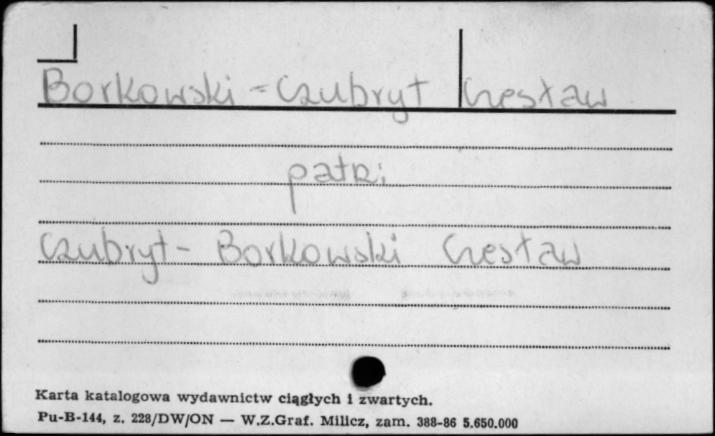 Borkowski-Czubryt Czesław
patrz:
Czubryt-Borkowski Czesław
Karta katalogowa wydawnictw ciągłych i zwartych.
Pu-B-144, z. 228/DW/ON — W.Z.Graf. Milicz, zam. 388-86 5.650.000